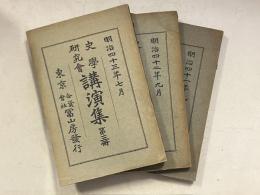 明治四十三年七月
史學
研究會
講演集 第三冊
東京 合資
會社 冨山房發行
明治四十二年九月
明治四十一年